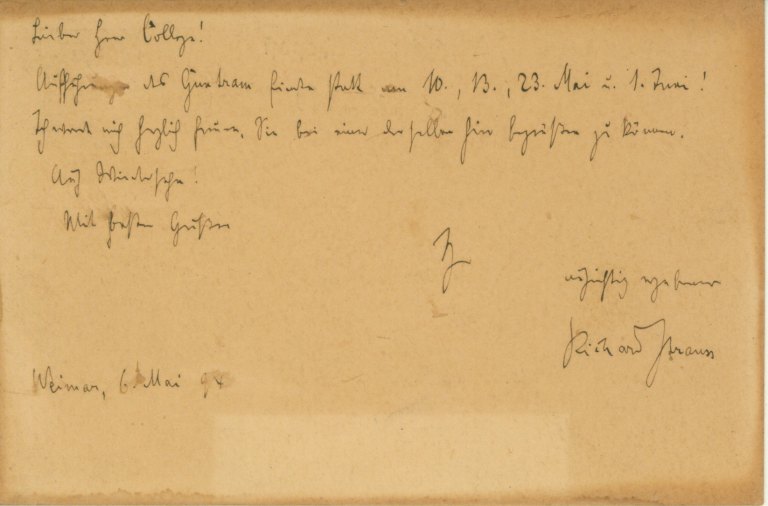 Lieber Herr College!
Aufführungen des Guntram finden statt am 10., 13., 23. Mai u. 1. Juni!
Ich werde mich herzlich freuen, Sie bei einer derselben hier begrüßen zu können.
Auf Wiedersehn!
Mit besten Grüßen
Ihr
aufrichtig ergebener
Richard Strauss
Weimar, 6. Mai 94